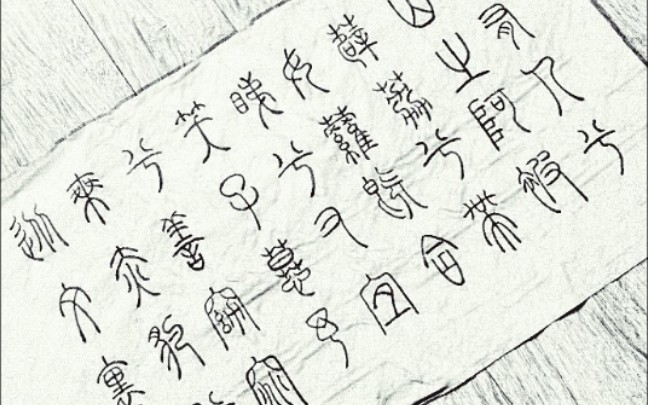 有人兮
山之阿被
薜荔兮帶
女蘿既含
睇兮又宜
笑子慕予
兮善窈窕
乘赤豹
從文狸